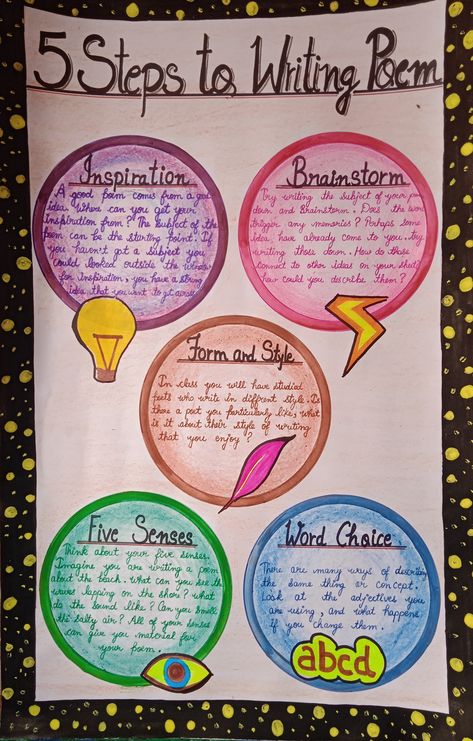 5 Steps to Writing Poem
Inspiration
A good poem comes from a good
idea. Where can you get your
inspiration from? The subject of the
poem can be the starting point. If
you haven't got a subject you
could looked outside the
for inspiration you have a strong
idea that you want to get across
Brainstorm
Try writing the subject of your poem
down and Brainstorm. Does the word
trigger any memories? Perhaps some
idea have already come to you. try
writing those down. How do those
connect to other ideas on your sheet
how could you describe them?
Form and Style
In class you will have studied
poets who write in diffrent style. Is
there a poet you particularly like, what
is it about their style of writing
that you enjoy?
Five Senses
Think about your five senses.
Imagine you are writing a poem
about the beach. what can you see the
waves lapping on the shore? what
do the sound like? Can you smell
the salty air? All of your senses
can give you material for
your poem.
Word Choice
There are many ways of
the same thing or concept.
Look at the adjectives you
are using, and what happens
if you change them.
abcd